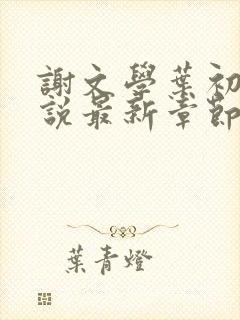 謝文學葉初
說最新章節
葉青燈